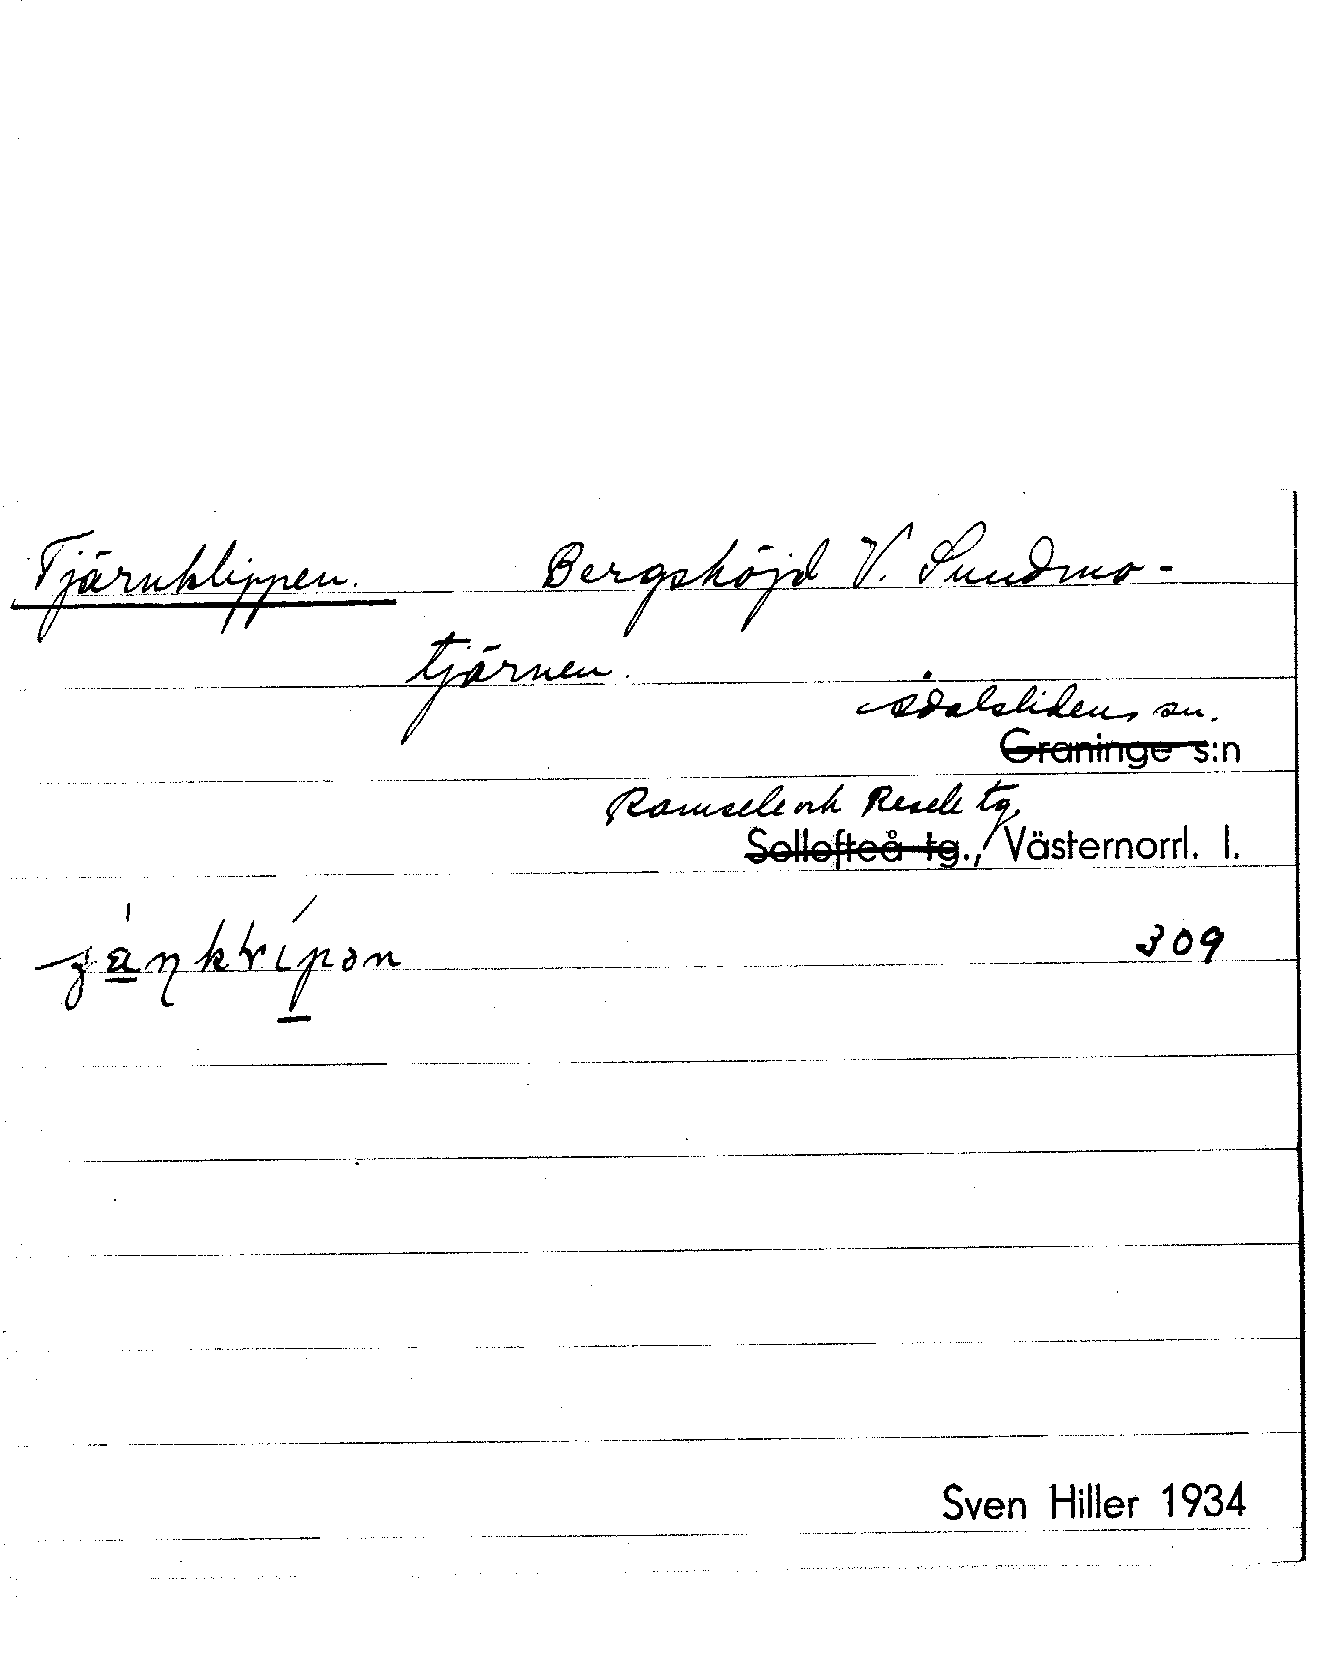 Tjärnklippen. Bergshöjd V. Sundmo-
tjärnen.
Ådalslidens sn.
Graninge s:n
Ramsele och Resele tg.
Sollefteå tg., Västernorrl. l.
309
Sven Hiller 1934